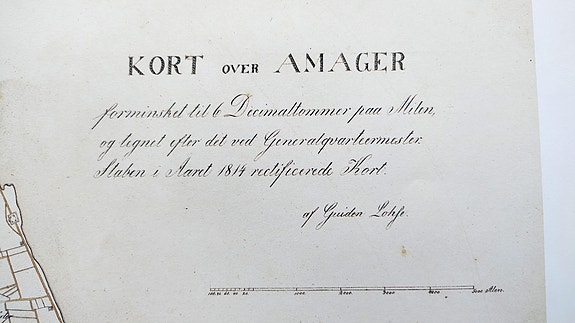 KORT OVER AMAGER
forminsket til 6 Decimaltommer paa Milen,
og tegnet efter det ved Generalqvarteermester
Staben i Aaret 1814 rectificerede Kort.
af Guiden Lohse.
1000 2000 3000 4000 5000 Alen.